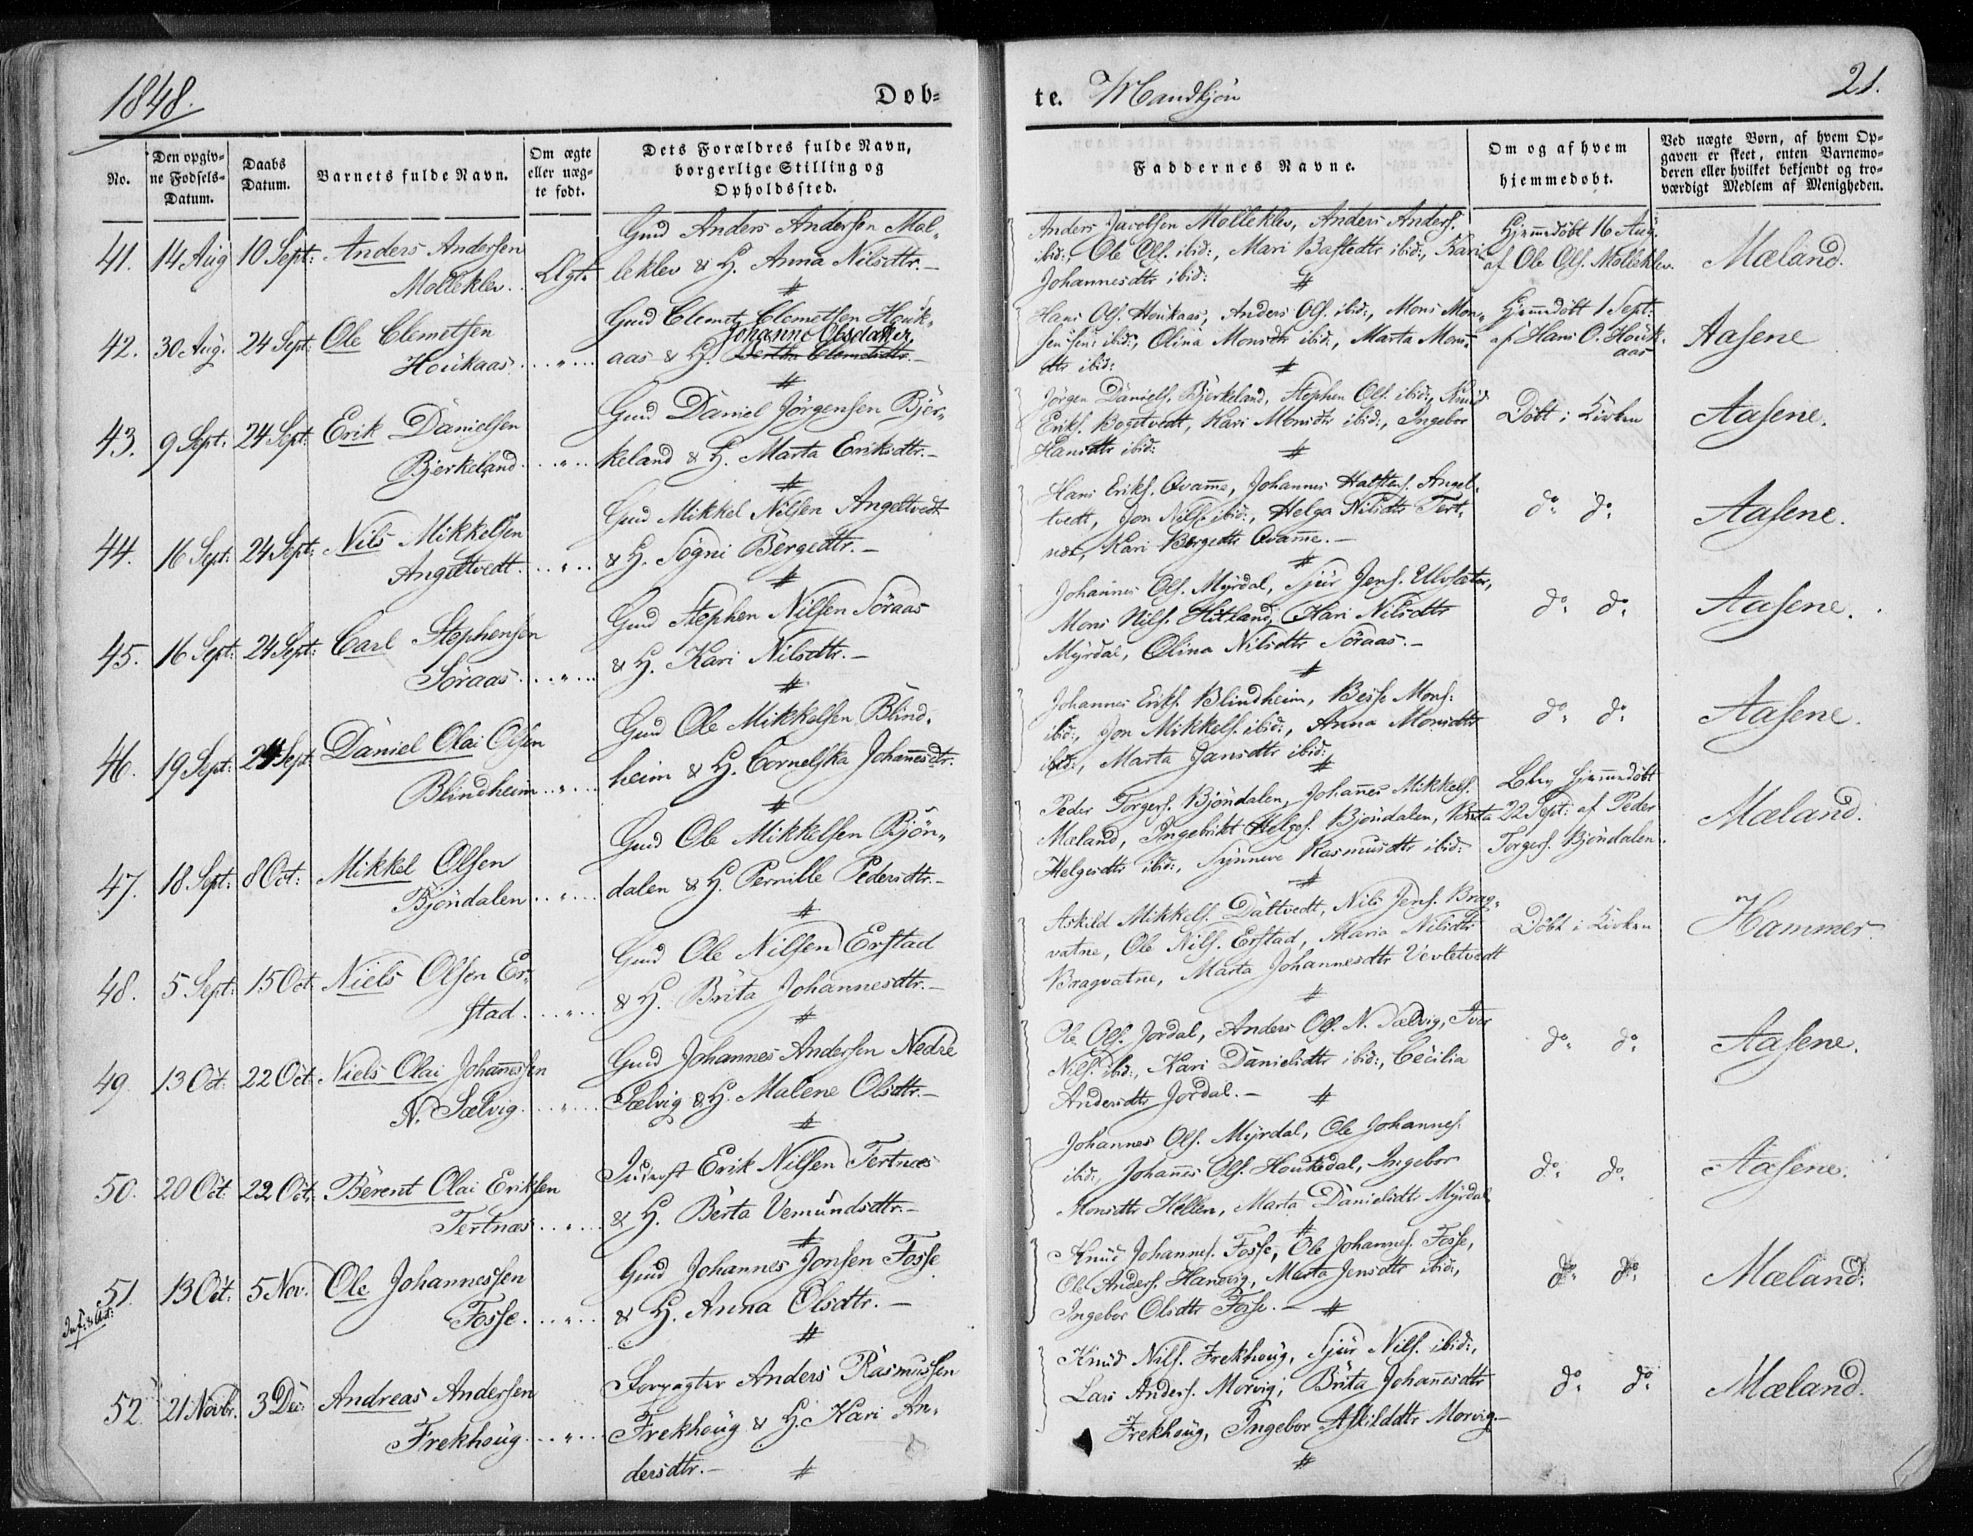 1848.
Døb-
te. Mandkjön
21.
No.
Den opgiv-
ne Fødsels-
Datum.
Daabs
Datum.
Barnets fulde Navn.
Om ægte
eller uæg-
te født.
Dets Forældres fulde Navn,
borgerlige Stilling og
Opholdssted.
Faddernes Navne.
Om og af hvem
hjemmedøbt.
Ved uægte Børn, af hvem Op-
gaven er skeet, enten Barnemo-
deren eller hvilket bekjendt og tro-
værdigt Medlem af Menigheden.
41. 14 Aug 10 Sept: Anders Andersen
Molleklev. Ægte
Gmd Anders Andersen Mol-
leklev & H. Anna Nilsdtr. -
Anders Jacobsen Molleklev, Anders Anders.
ibid:, Ole Ols. ibid:, Mari Bastedtr ibid:, Kari
Johannesdtr ibid:
Hjemdöbt 16 Aug.
af Ole Ols. Molleklev.
Mæland.
42. 30 Aug. 24 Sept: Ole Clemetsen
Houkaas ... " ...
Gmd Clemet Clemetsen Houk-
Johanne Olesdatter
aas & H. Bertha Clemetsdtr. -
Hans Ols. Houkaas, Anders Ols. ibid:, Mons Mon-
sen ibid:, Olina Monsdtr ibid:, Marta Mons-
dtr ibid:
Hjemdöbt 1 Sept:
af Hans O. Houk-
aas
Aasene
43. 9 Sept: 24 Sept: Erik Danielsen
Bjerkeland ... " ...
Gmd Daniel Jörgensen Bjer-
keland & H. Marta Eriksdtr. -
Jörgen Daniels. Bjerkeland, Stephen Ols. ibid:, Knud
Eriks. Bogetvedt, Kari Monsdtr ibid:, Ingebor
Hansdtr ibid:
Döbt i Kirken
Aasene.
44. 16 Sept: 24 Sept: Nils Mikkelsen
Angeltvedt ... " ...
Gmd Mikkel Nilsen Angeltvedt
& H. Sogni Börgedtr. -
Hans Eriks. Qvamme, Johannes Halsteus. Angel-
tvedt, Jon Nils. ibid:, Helga Nilsdtr Tert-
næs, Kari Börgedtr Qvamme. -
do do
Aasene.
45. 16 Sept: 24 Sept: Carl Stephensen
Söraas ... " ...
Gmd Stephen Nilsen Söraas
& H. Kari Nilsdtr. -
Johannes Ols. Myrdal, Sjur Jens. Ulvsæter,
Mons Nils. Hitland, Kari Nilsdtr
Myrdal, Olina Nilsdtr Söraas. -
do do
Aasene.
46. 19 Sept: 24 Sept. Daniel Olai Olsen
Blindheim ... " ...
Gmd Ole Mikkelsen Blind-
heim & H. Cornelska Johannesdtr.
Johannes Eriks. Blindheim, Besse Mons.
ibid:, Jon Mikkels. ibid:, Anna Monsdtr
ibid:, Marta Jansdtr ibid:
do do
Aasene.
47. 18 Sept: 8 Oct: Mikkel Olsen
Bjöndalen ... " ...
Gmd Ole Mikkelsen Bjön-
dalen & H. Pernille Pedersdtr. -
Peder Torgers. Bjöndalen, Johannes Mikkels.
Mæland, Ingebrikt Helges. Bjöndalen, Brita
Helgesdtr ibid:, Synneve Rasmusdtr ibid:
hjemmedöbt
22 Sept: af Peder
Torgers. Bjöndalen.
Mæland.
48. 5 Sept: 15 Oct. Niels Olsen Er-
stad ... " ...
Gmd Ole Nilsen Erstad
& H. Brita Johannesdtr. -
Askild Mikkels. Dattvedt, Nils Jens. Brag-
vatne, Ole Nils. Erstad, Maria Nilsdtr
Bragvatne, Marta Johannesdtr Vevletvedt
Döbt i Kirken
Hammer.
49. 13 Oct. 22 Oct. Niels Olai Johannessen
N. Sælvig ... " ...
Gmd Johannes Andersen Nedre
Sælvig & H. Malene Olsdtr. -
Ole Ols. Jordal, Anders Ols. N. Sælvig, Iver
Nils. ibid:, Kari Danielsdtr ibid:, Cecilia
Andersdtr Jordal. -
do do
Aasene.
50. 20 Oct. 22 Oct. Bérent Olai Eriksen
Tertnæs ... " ...
Inderst Erik Nilsen Tertnæs
& H. Berta Vemundsdtr. -
Johannes Ols. Myrdal, Ole Johannes.
ibid:, Johannes Ols. Houkedal, Ingebor
Monsdtr Hellen, Marta Danielsdtr Myrdal
do do
Aasene.
51. 13 Oct: 5 Nov. Ole Johannessen
Fosse ... " ...
Gmd Johannes Jonsen Fosse
& H. Anna Olsdtr. -
Knud Johannes. Fosse, Ole Johannes. Fosse,
Ole Anders. Hanevig, Marta Jensdtr ibid:,
Ingebor Olsdtr Fosse. -
do do
Mæland.
52. 21 Novbr. 3 Dec. Andreas Andersen
Frekhoug ... " ...
Forpagter Anders Rasmussen
Frekhoug & H. Kari An-
dersdtr. -
Knud Nils. Frekhoug, Sjur Nils. ibid:,
Lars Anders. Morvig, Brita Johannesdtr
Frekhoug, Ingebor Askilddtr Morvig -
do do
Mæland.